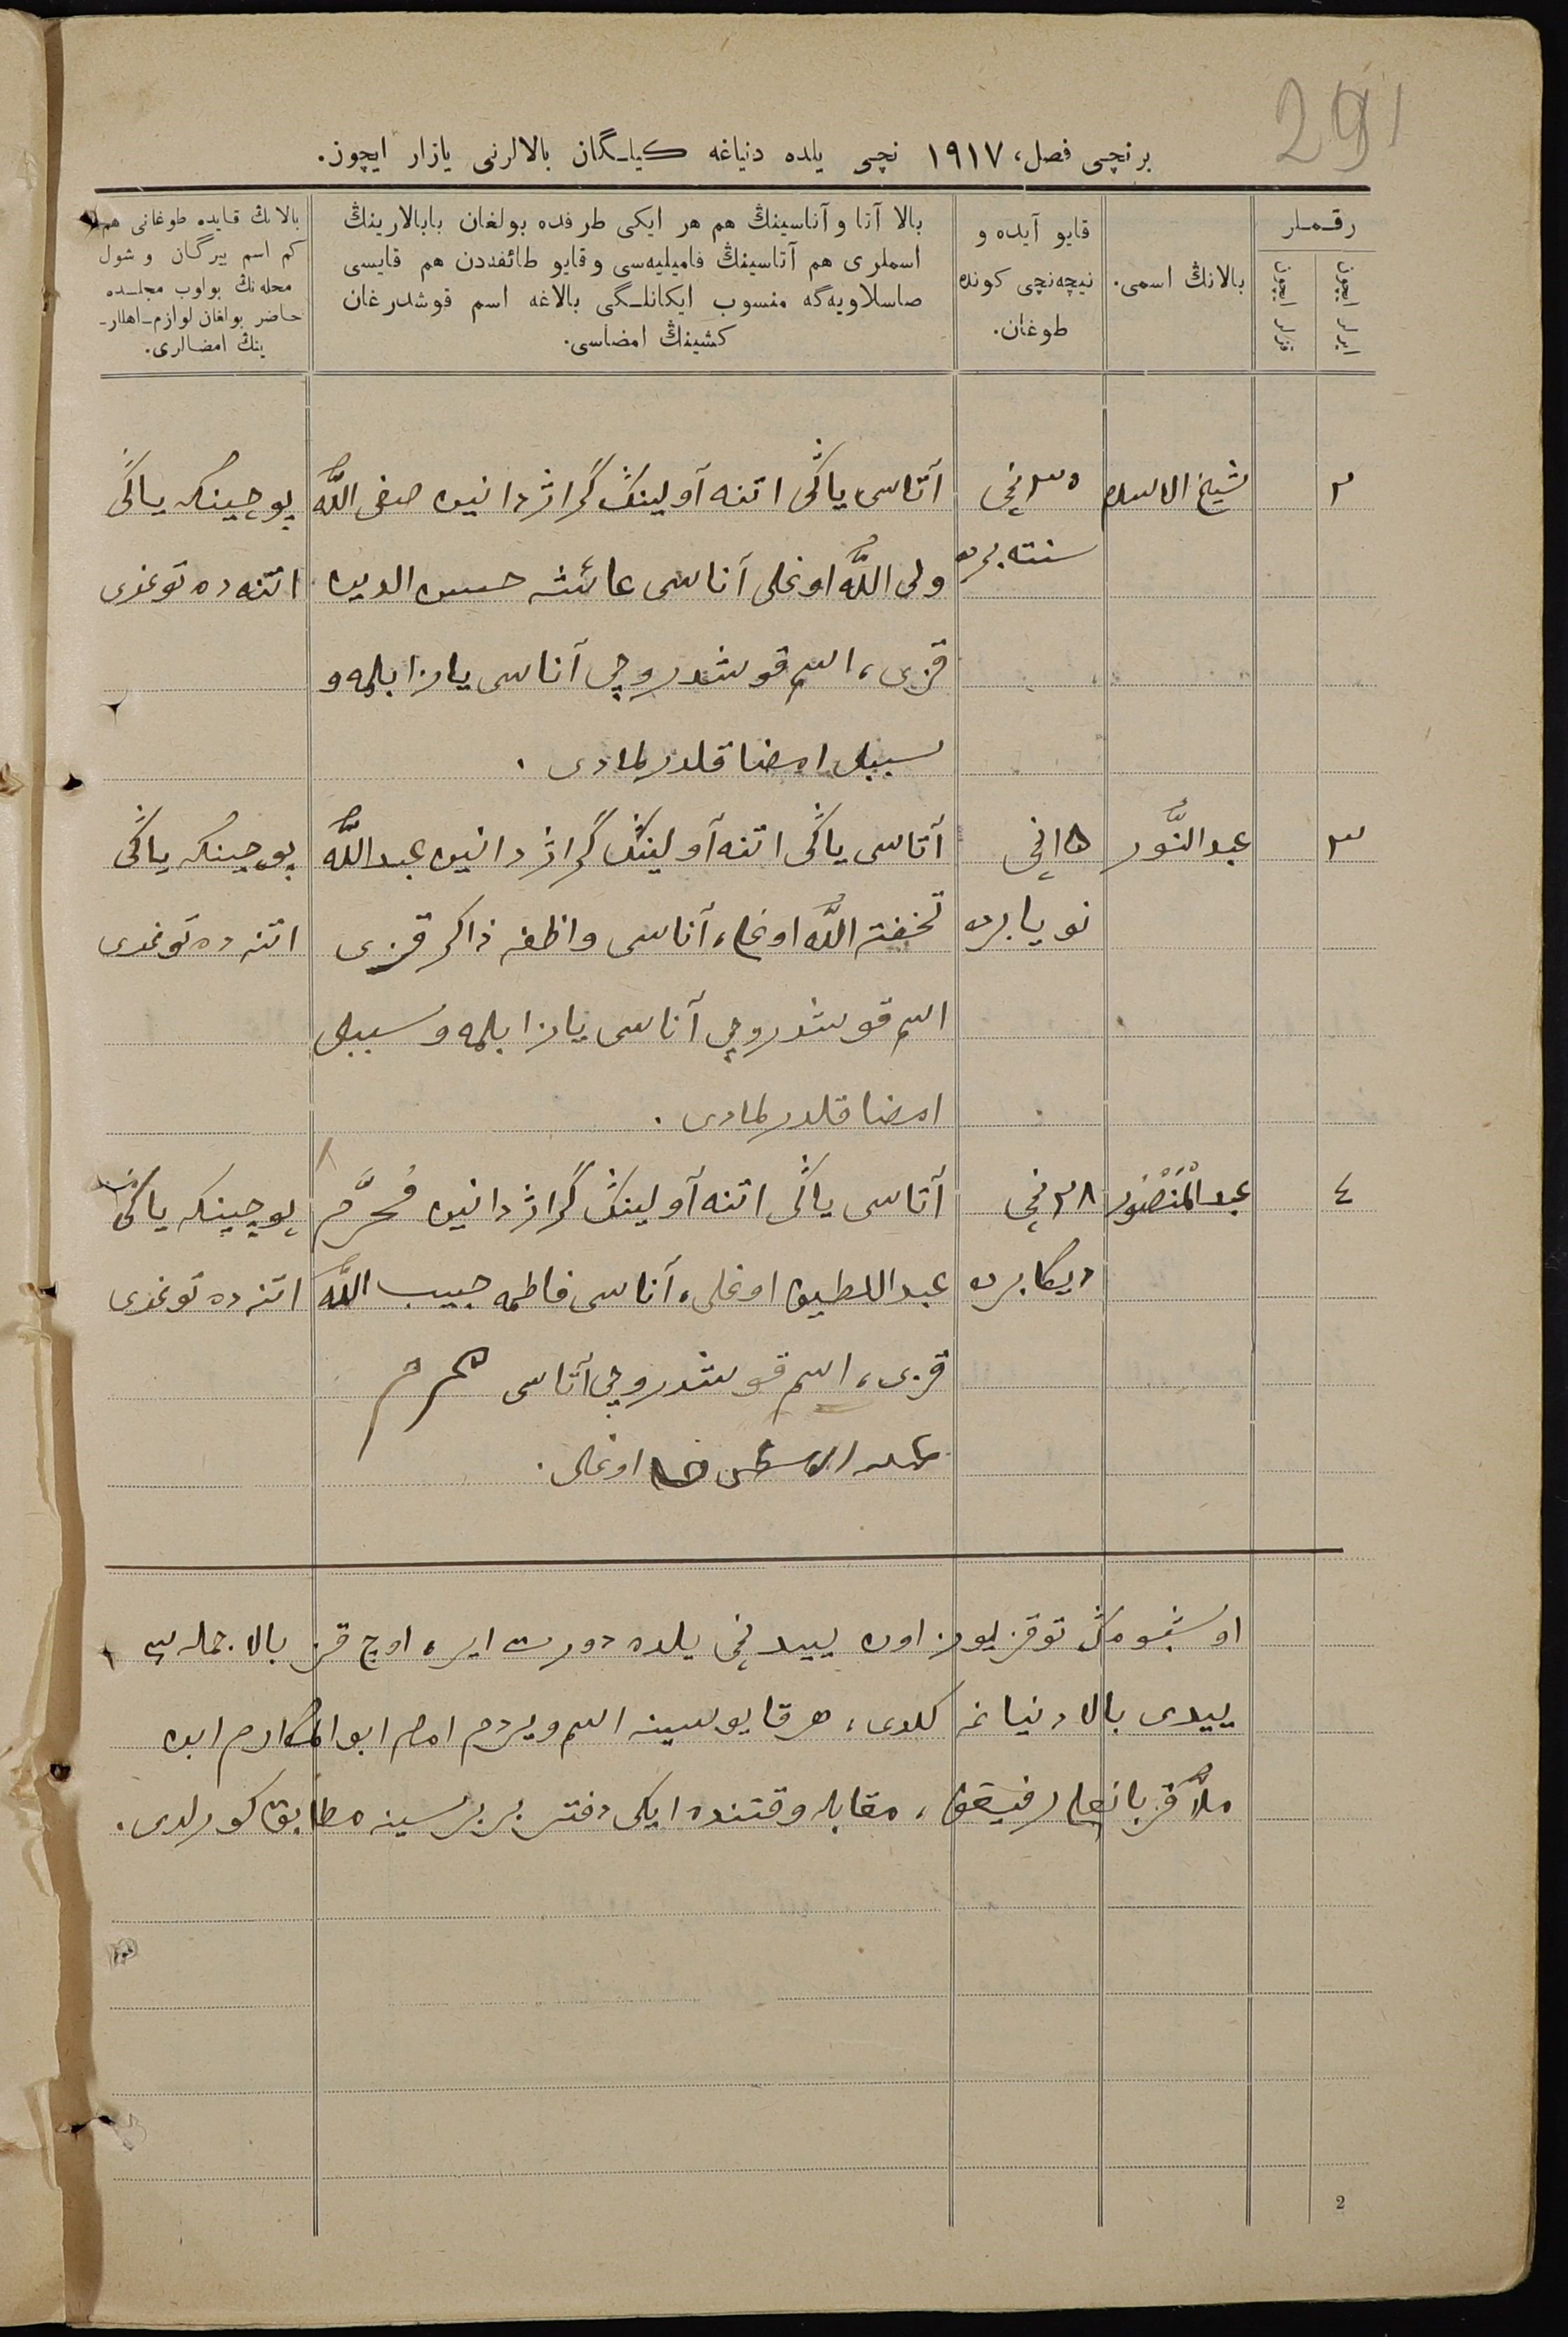 291
برنچی فصل، ١٩١٧ نچی یلده دنیاغه کیلـگان بالالرنی یازار ایچون.
رقـمـلر
ایرلر ایچون
قزلر ایچون
بالانڭ اسمی.
قایو آیده و
نیچه‌نچی کونده
طوغان.
بالا آتا و آناسینڭ هم هر ایکی طرفده بولغان بابالارینڭ
اسملری هم آتاسینڭ فامیلیه‌سی و قایو طائفه‌دن هم قایسی
صاسلاویه‌گه منسوب ایکانلـگی بالاغه اسم قوشدرغان
کشینڭ امضاسی.
بالانڭ قایده طوغانی هم
کم اسم بیرگان و شول
محله‌نڭ بولوب مجلـسده
حاضر بولغان لوازم اهللر
ینڭ امضالری.
٢
شیخ الاسلام
٣٠نچی
سنته‌برده
آتاسی یاڭی اتنه آولینڭ گراژدانین صفی اللّٰه
ولی اللّٰه اوغلی آناسی عائشه حسن الدین
قزی، اسم قوشدروچی آناسی یازا بلمه‌و
سببلی امضا قلدرلمادی.
پوچینکه یاڭی
اتنه ده توغدی
٣
عبد النّور
١٥نچی
نویابرده
آتاسی یاڭی اتنه آولینڭ گراژدانین عبد اللّٰه
تحفة اللّٰه اوغلی، آناسی واظفه ذاکر قزی
اسم قوشدروچی آناسی یازا بلمه‌و سببلی
امضا قلدرلمادی.
پوچینکه یاڭی
اتنه ده توغدی
٤
عبد المَنْصُور
٢٨نچی
دیکابرده
آتاسی یاڭی اتنه آولینڭ گراژدانین مُحرَّم
عبد اللطیف اوغلی، آناسی فاطمه حبیب اللّٰه
قزی، اسم قوشدروچی آتاسی محرم
اوغلی.
پوچینکه یاڭی
اتنه ده توغدی
اوشبو مڭ توقز یوز اون ییدنچی یلده دورت ایر، اوچ قز بالا جمله‌سی
ییدی بالا دنیاغه کلدی، هر قایوسینه اسم ویردم امام ابو المکارم ابن
ملّا قربانعلی رفیقف، مقابله وقتنده ایکی دفتر بربرسینه مطابق کورلدی.
2